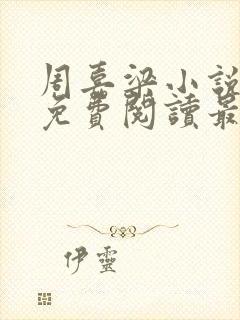 周喜梁小說
免費閱讀最
伊靈